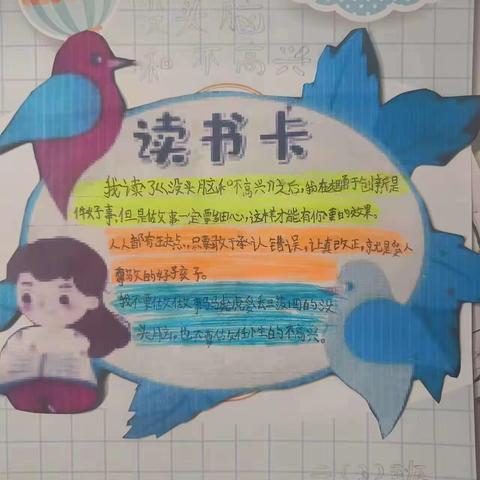 没头脑
和不高兴
读书卡
我读了《没头脑和不高兴》以后,我在想勇于创新是
件好事,但是做事一定要细心,这样才能有你要的效果。
人人都有缺点,只要敢于承认错误,认真改正,就是受人
尊敬的好孩子。
我不要做做事马马虎虎丢三落四的没
头脑,也不要做任性的不高兴。
二(3)班